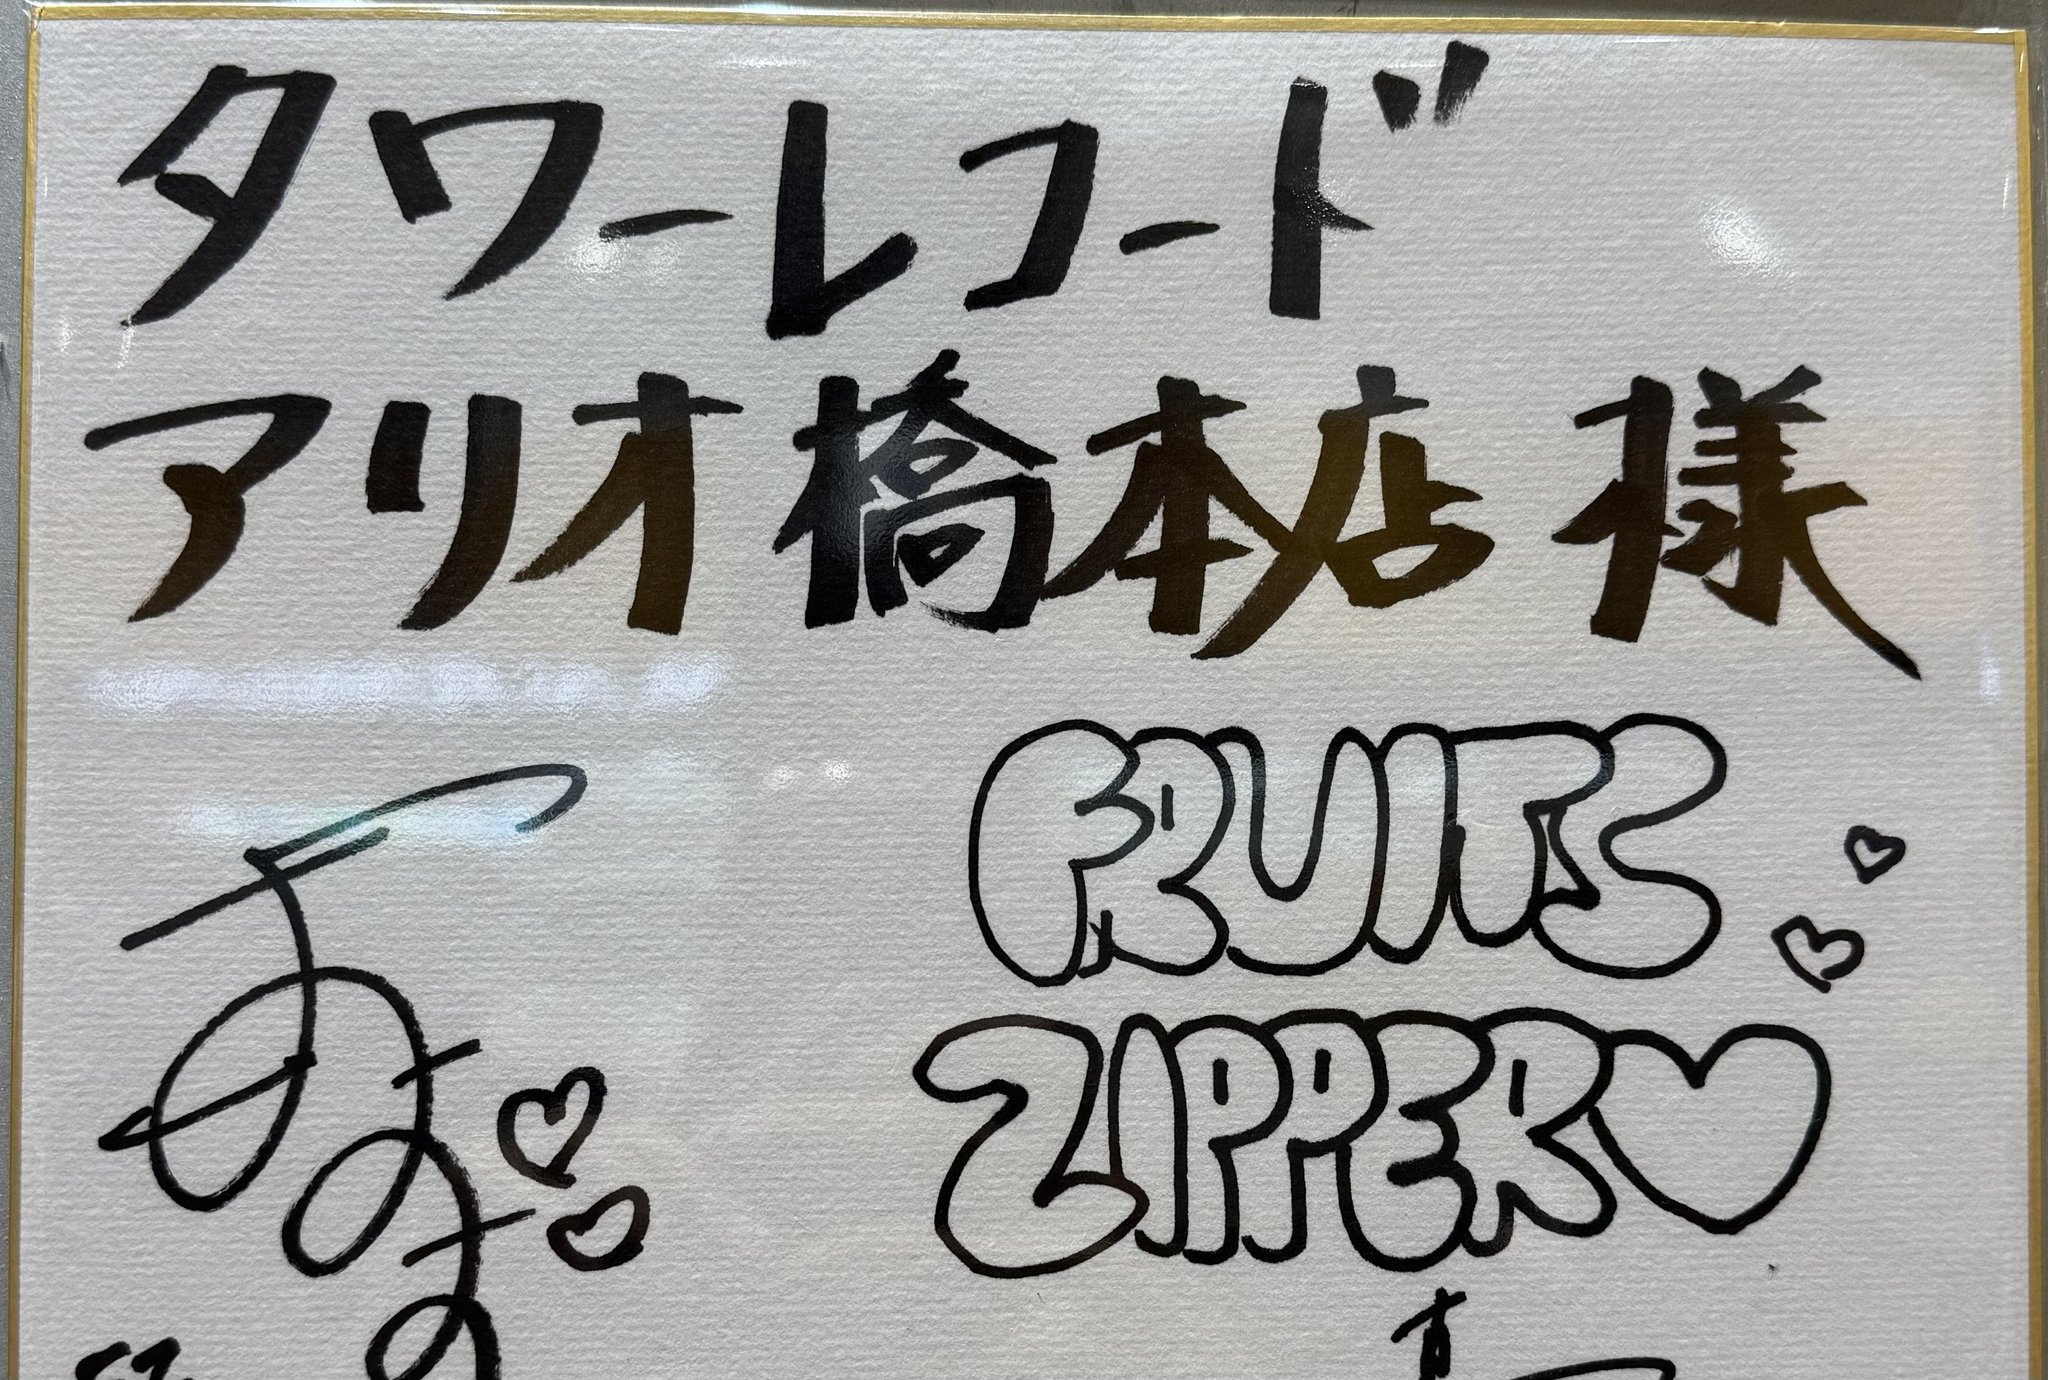 タワーレコード
アリオ橋本店 様
FRUITS
ZIPPER♡